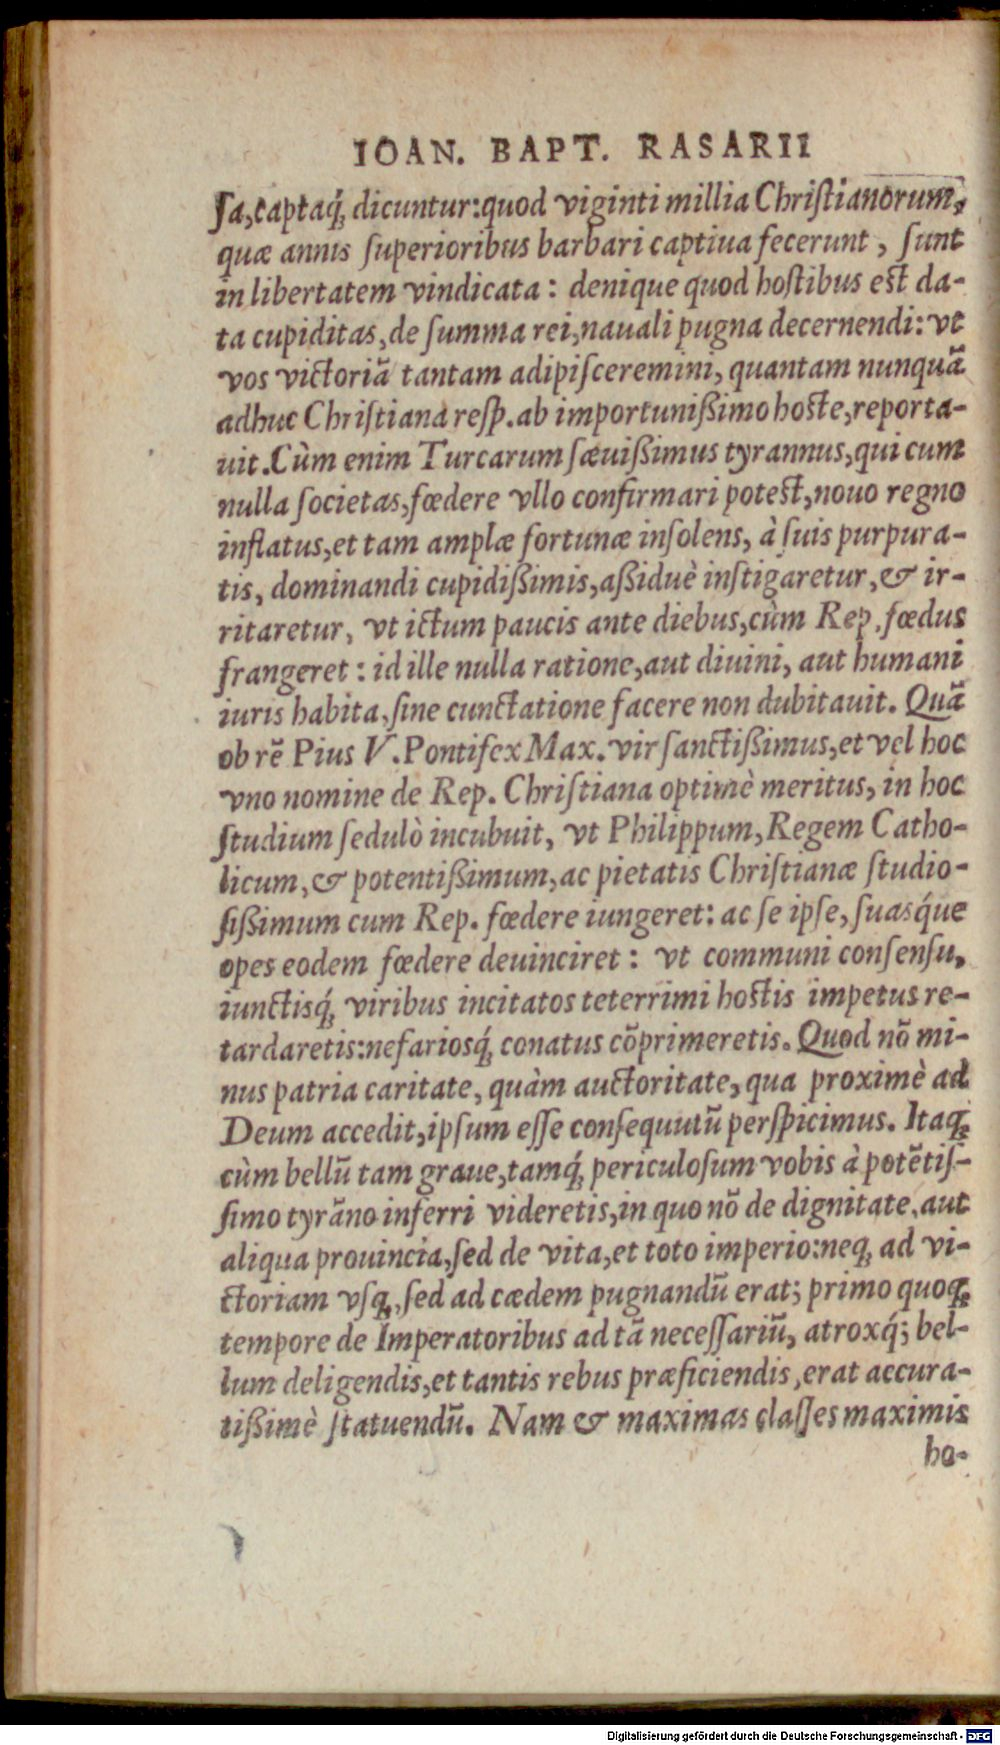 IOAN. BAPT. RASARII
ſa, captaq́; dicuntur: quod viginti millia Chriſtianorum,
quæ annis ſuperioribus barbari captiua fecerunt, ſunt
in libertatem vindicata: denique quod hoſtibus eſt da-
ta cupiditas, de ſumma rei, nauali pugna decernendi: vt
vos victoriā tantam adipiſceremini, quantam nunquā
adhuc Chriſtiana reſp. ab importunißimo hoſte, reporta-
uit. Cùm enim Turcarum ſæuißimus tyrannus, qui cum
nulla ſocietas, fœdere vllo confirmari poteſt, nouo regno
inflatus, et tam amplæ fortunæ inſolens, à ſuis purpura-
tis, dominandi cupidißimis, aßiduè inſtigaretur, & ir-
ritaretur, vt ictum paucis ante diebus, cùm Rep. fœdus
frangeret: id ille nulla ratione, aut diuini, aut humani
iuris habita, ſine cunctatione facere non dubitauit. Quā
ob rē Pius V. Pontifex Max. vir ſanctißimus, et vel hoc
vno nomine de Rep. Chriſtiana optimè meritus, in hoc
ſtudium ſedulò incubuit, vt Philippum, Regem Catho-
licum, & potentißimum, ac pietatis Chriſtianæ ſtudio-
ſißimum cum Rep. fœdere iungeret: ac ſe ipſe, ſuasq́ue
opes eodem fœdere deuinciret: vt communi conſenſu,
iunctisq́; viribus incitatos teterrimi hoſtis impetus re-
tardaretis: nefariosq́; conatus cōprimeretis. Quod nō mi-
nus patria caritate, quàm auctoritate, qua proximè ad
Deum accedit, ipſum eſſe conſequutū perſpicimus. Itaq;
cùm bellū tam graue, tamq́; periculoſum vobis à potētiſ-
ſimo tyrāno inferri videretis, in quo nō de dignitate, aut
aliqua prouincia, ſed de vita, et toto imperio: neq; ad vi-
ctoriam vſq;, ſed ad cædem pugnandū erat; primo quoq;
tempore de Imperatoribus ad tā neceſſariū, atroxq́; bel-
lum deligendis, et tantis rebus præficiendis, erat accura-
tißimè ſtatuendū. Nam & maximas claſſes maximis
ho-
Digitalisierung gefördert durch die Deutsche Forschungsgemeinschaft - DFG